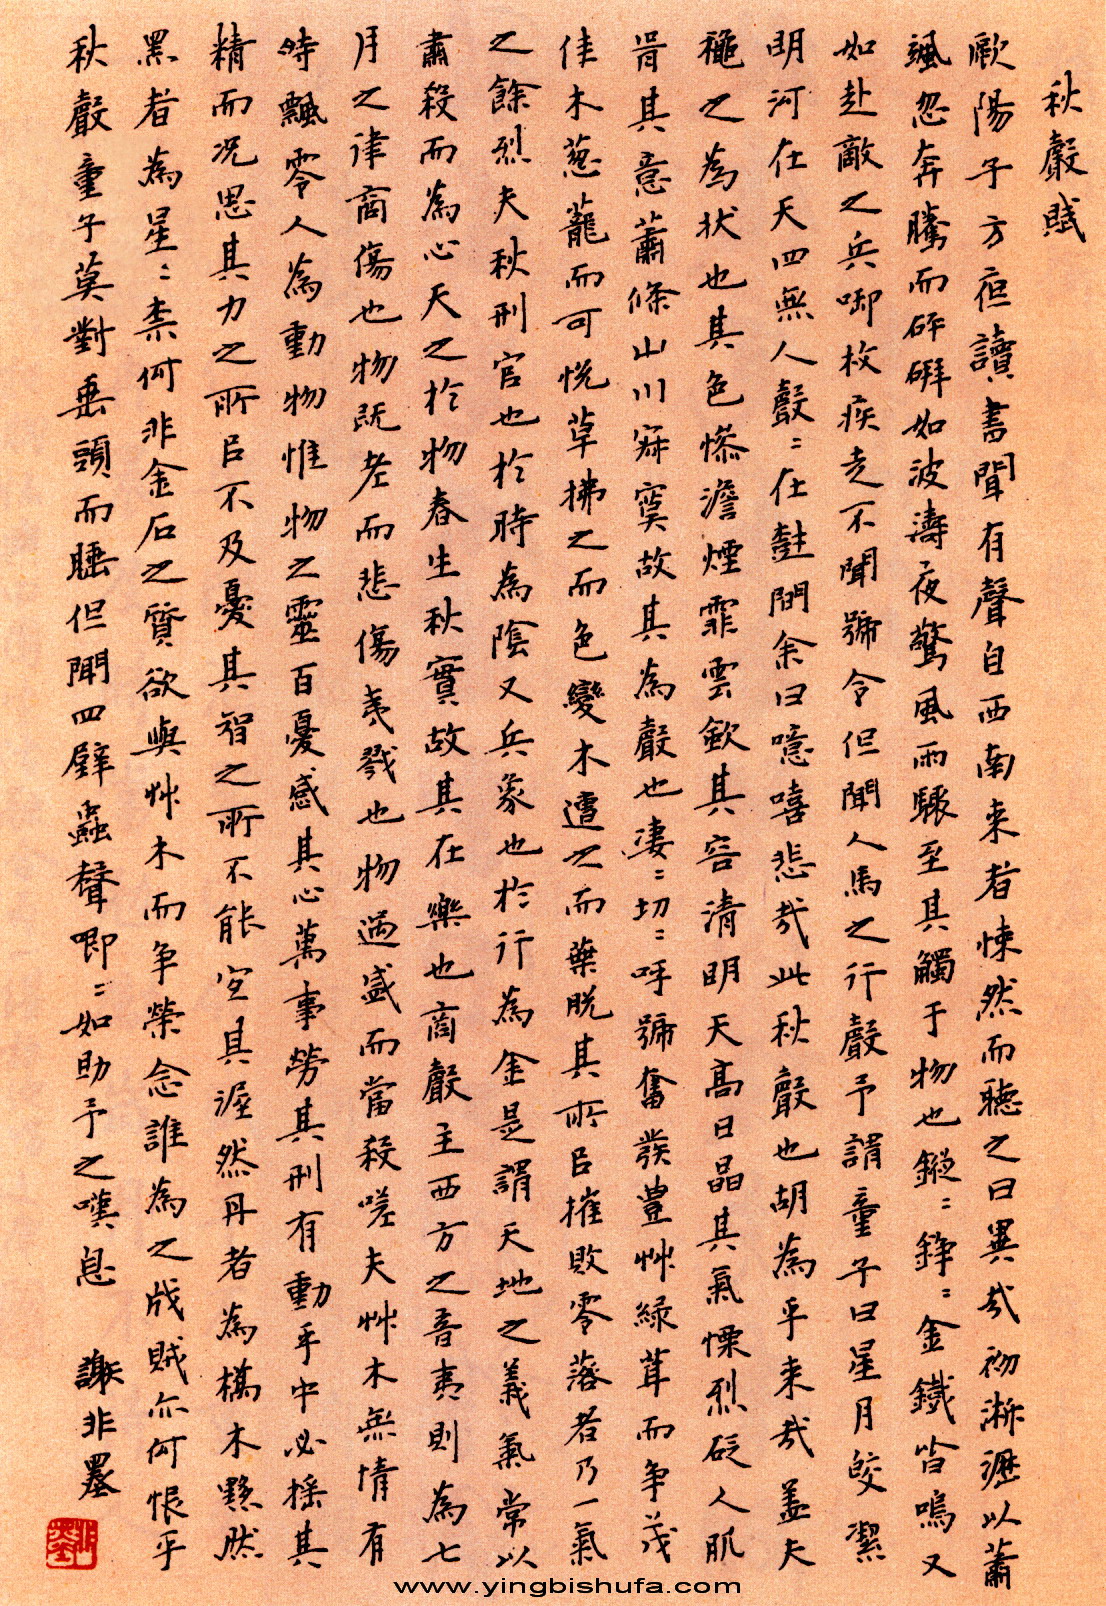 秋聲賦
歐陽子方夜讀書聞有聲自西南来者悚然而聽之曰異哉初淅瀝以蕭
颯忽奔騰而砰磞如波濤夜驚風雨驟至其觸于物也鏦〻錚〻金鐵皆鳴又
如赴敵之兵啣枚疾走不聞號令但聞人馬之行聲予謂童子曰星月皎潔
明河在天四無人聲〻在樹間余曰噫嘻悲哉此秋聲也胡為乎来哉盖夫
穐之為状也其色慘澹煙霏雲歛其容清明天高日晶其氣慄烈砭人肌
骨其意蕭條山川寂寞故其為聲也凄〻切〻呼號奮發豊艸緑茸而争茂
佳木葱蘢而可悦草拂之而色變木遭之而葉脱其所㠯摧敗零落者乃一氣
之餘烈夫秋刑官也於時為陰又兵象也於行為金是謂天地之義氣常以
肅殺而為心天之於物春生秋實故其在樂也商聲主西方之音夷則為七
月之律商傷也物既老而悲傷夷戮也物過盛而當殺嗟夫艸木無情有
時飄零人為動物惟物之靈百憂感其心萬事勞其刑有動乎中必摇其
精而况思其力之所㠯不及憂其智之所不能宜其渥然丹者為槁木黟然
黑者為星〻柰何非金石之質欲與艸木而争榮念誰為之戕賊亦何恨乎
秋聲童子莫對垂頭而睡但聞四壁蟲聲唧〻如助予之嘆息 謝非墨
www.yingbishufa.com